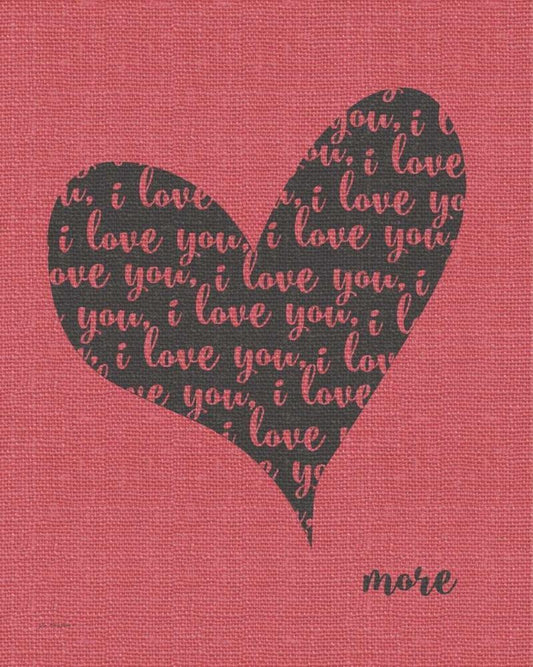 you, i
ou, i love
u, i love i love yo
i love you, i love you,
ove you, i love you, i
you, i love you, i l
, i love you, i lov
ve you, i love
i love y
you
more